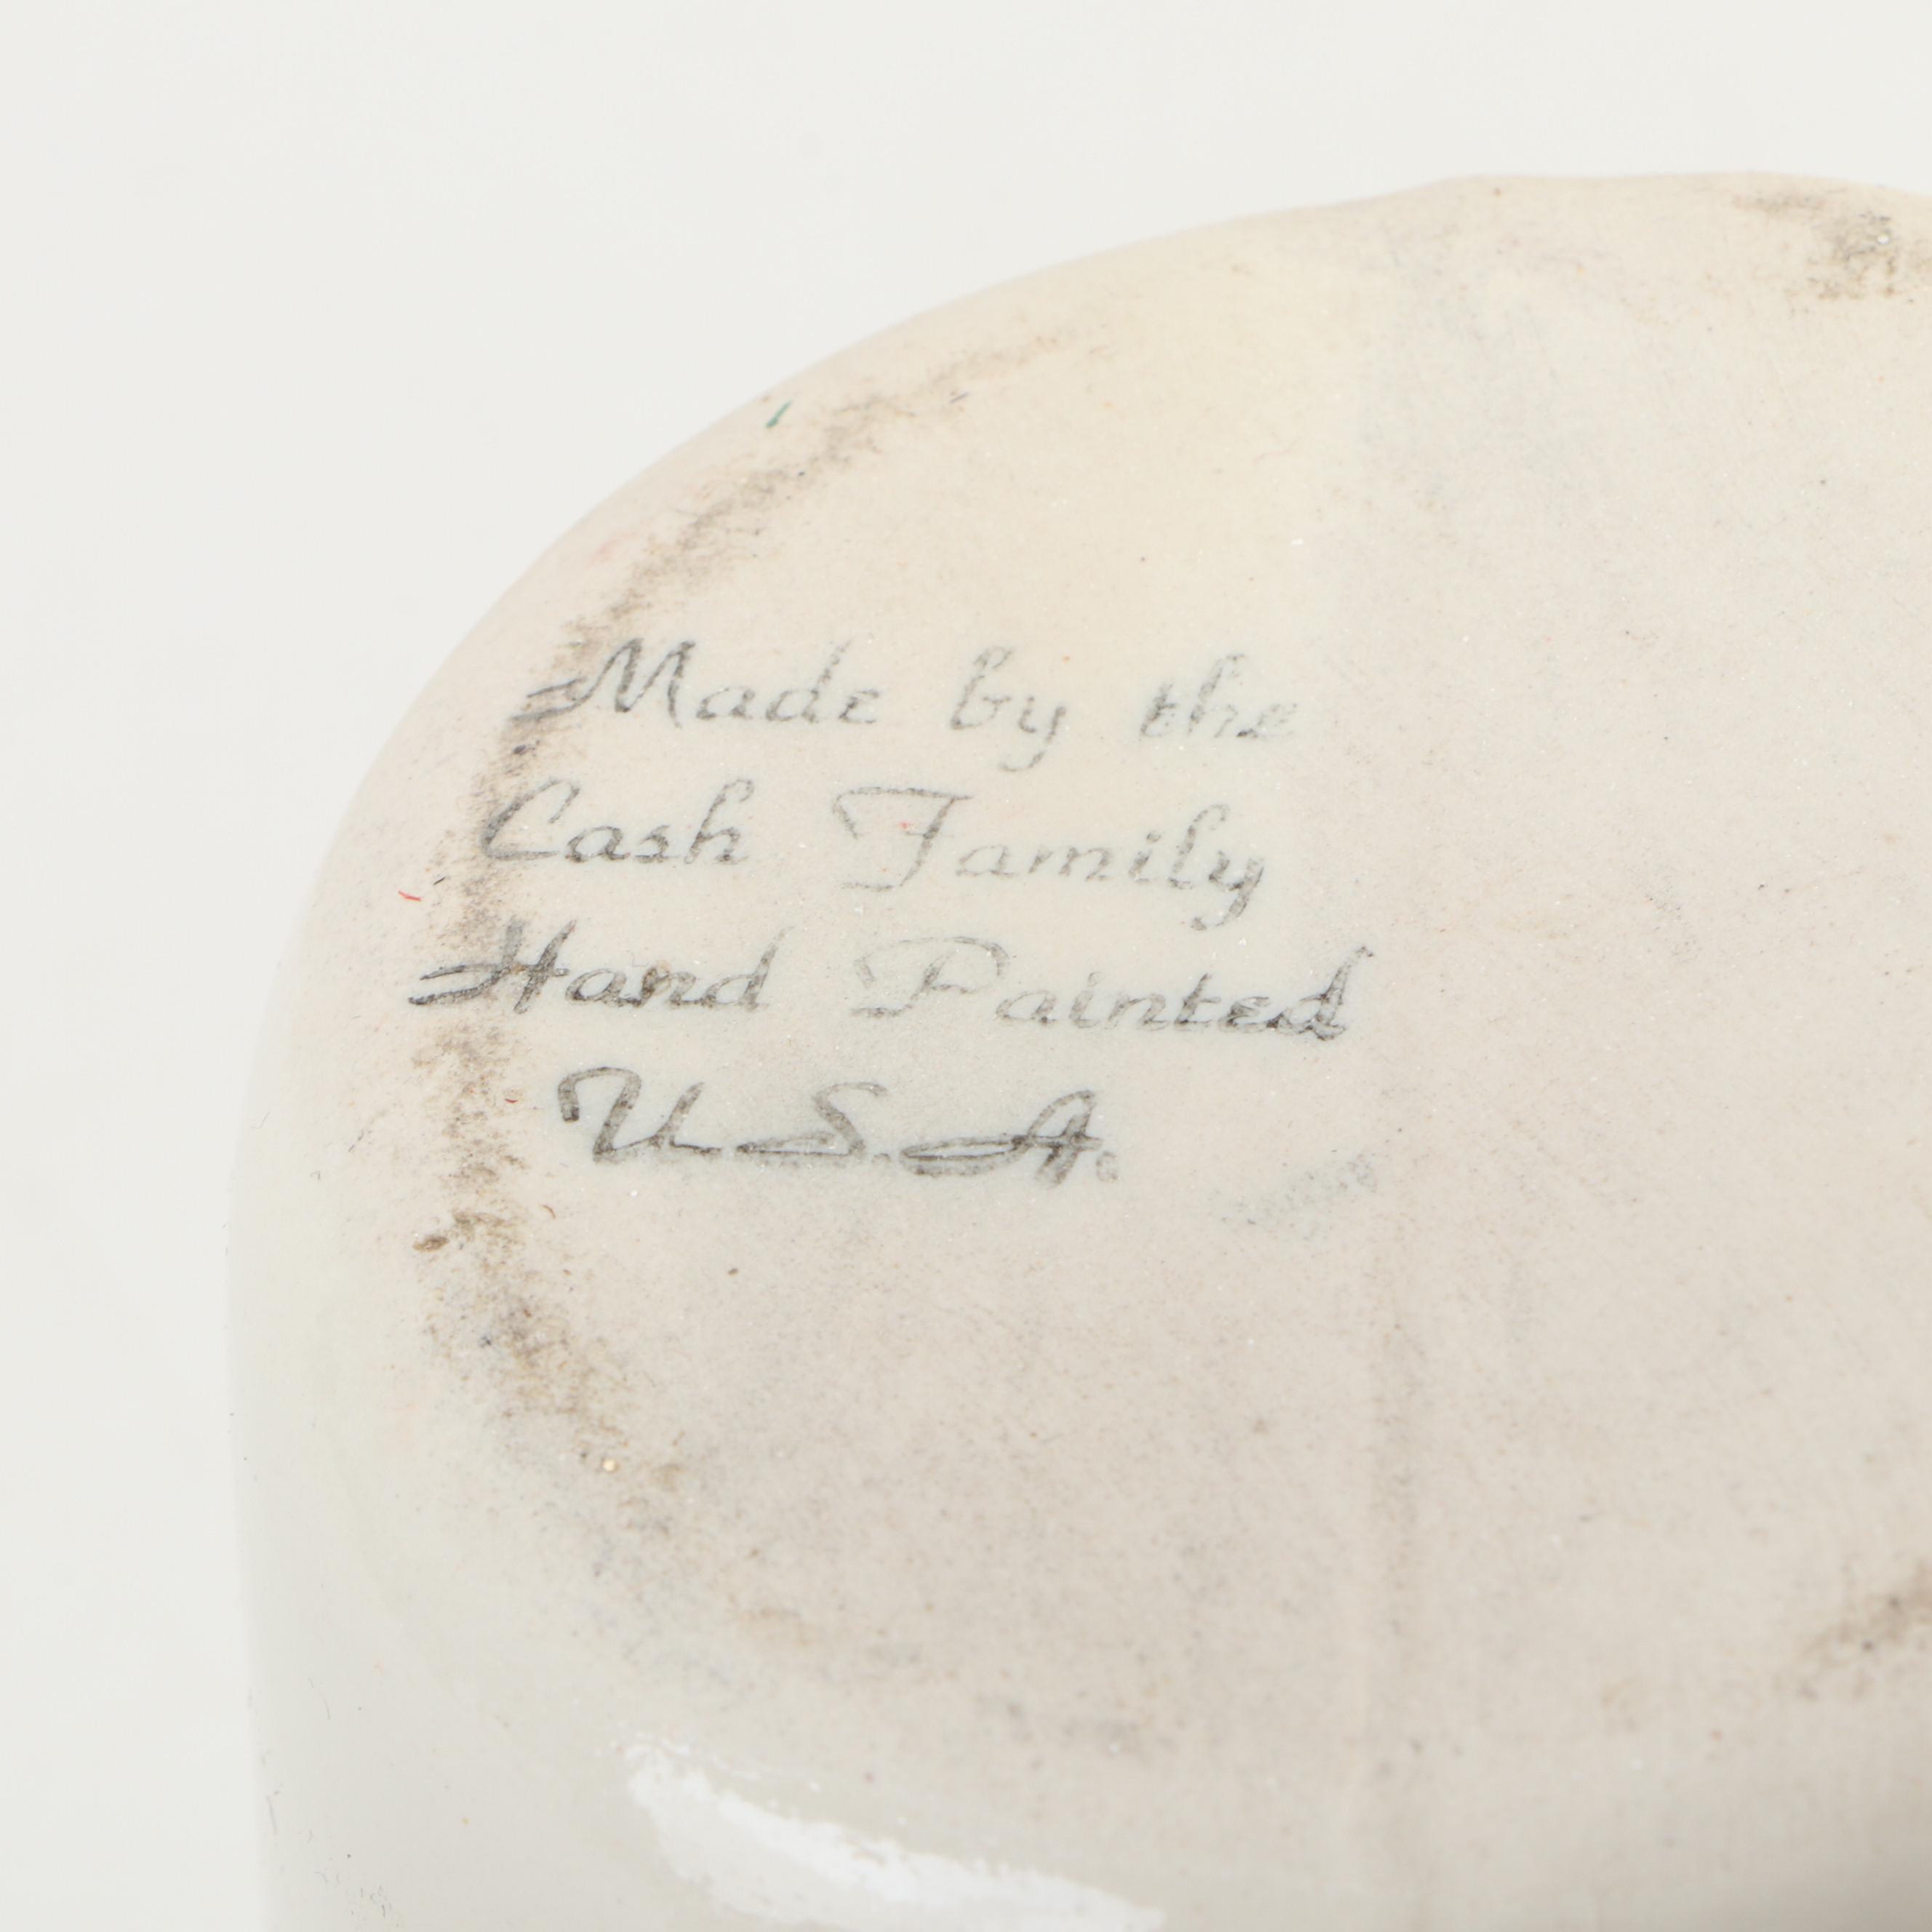 Made by the
Cash Family
Hand Painted
U.S.A.